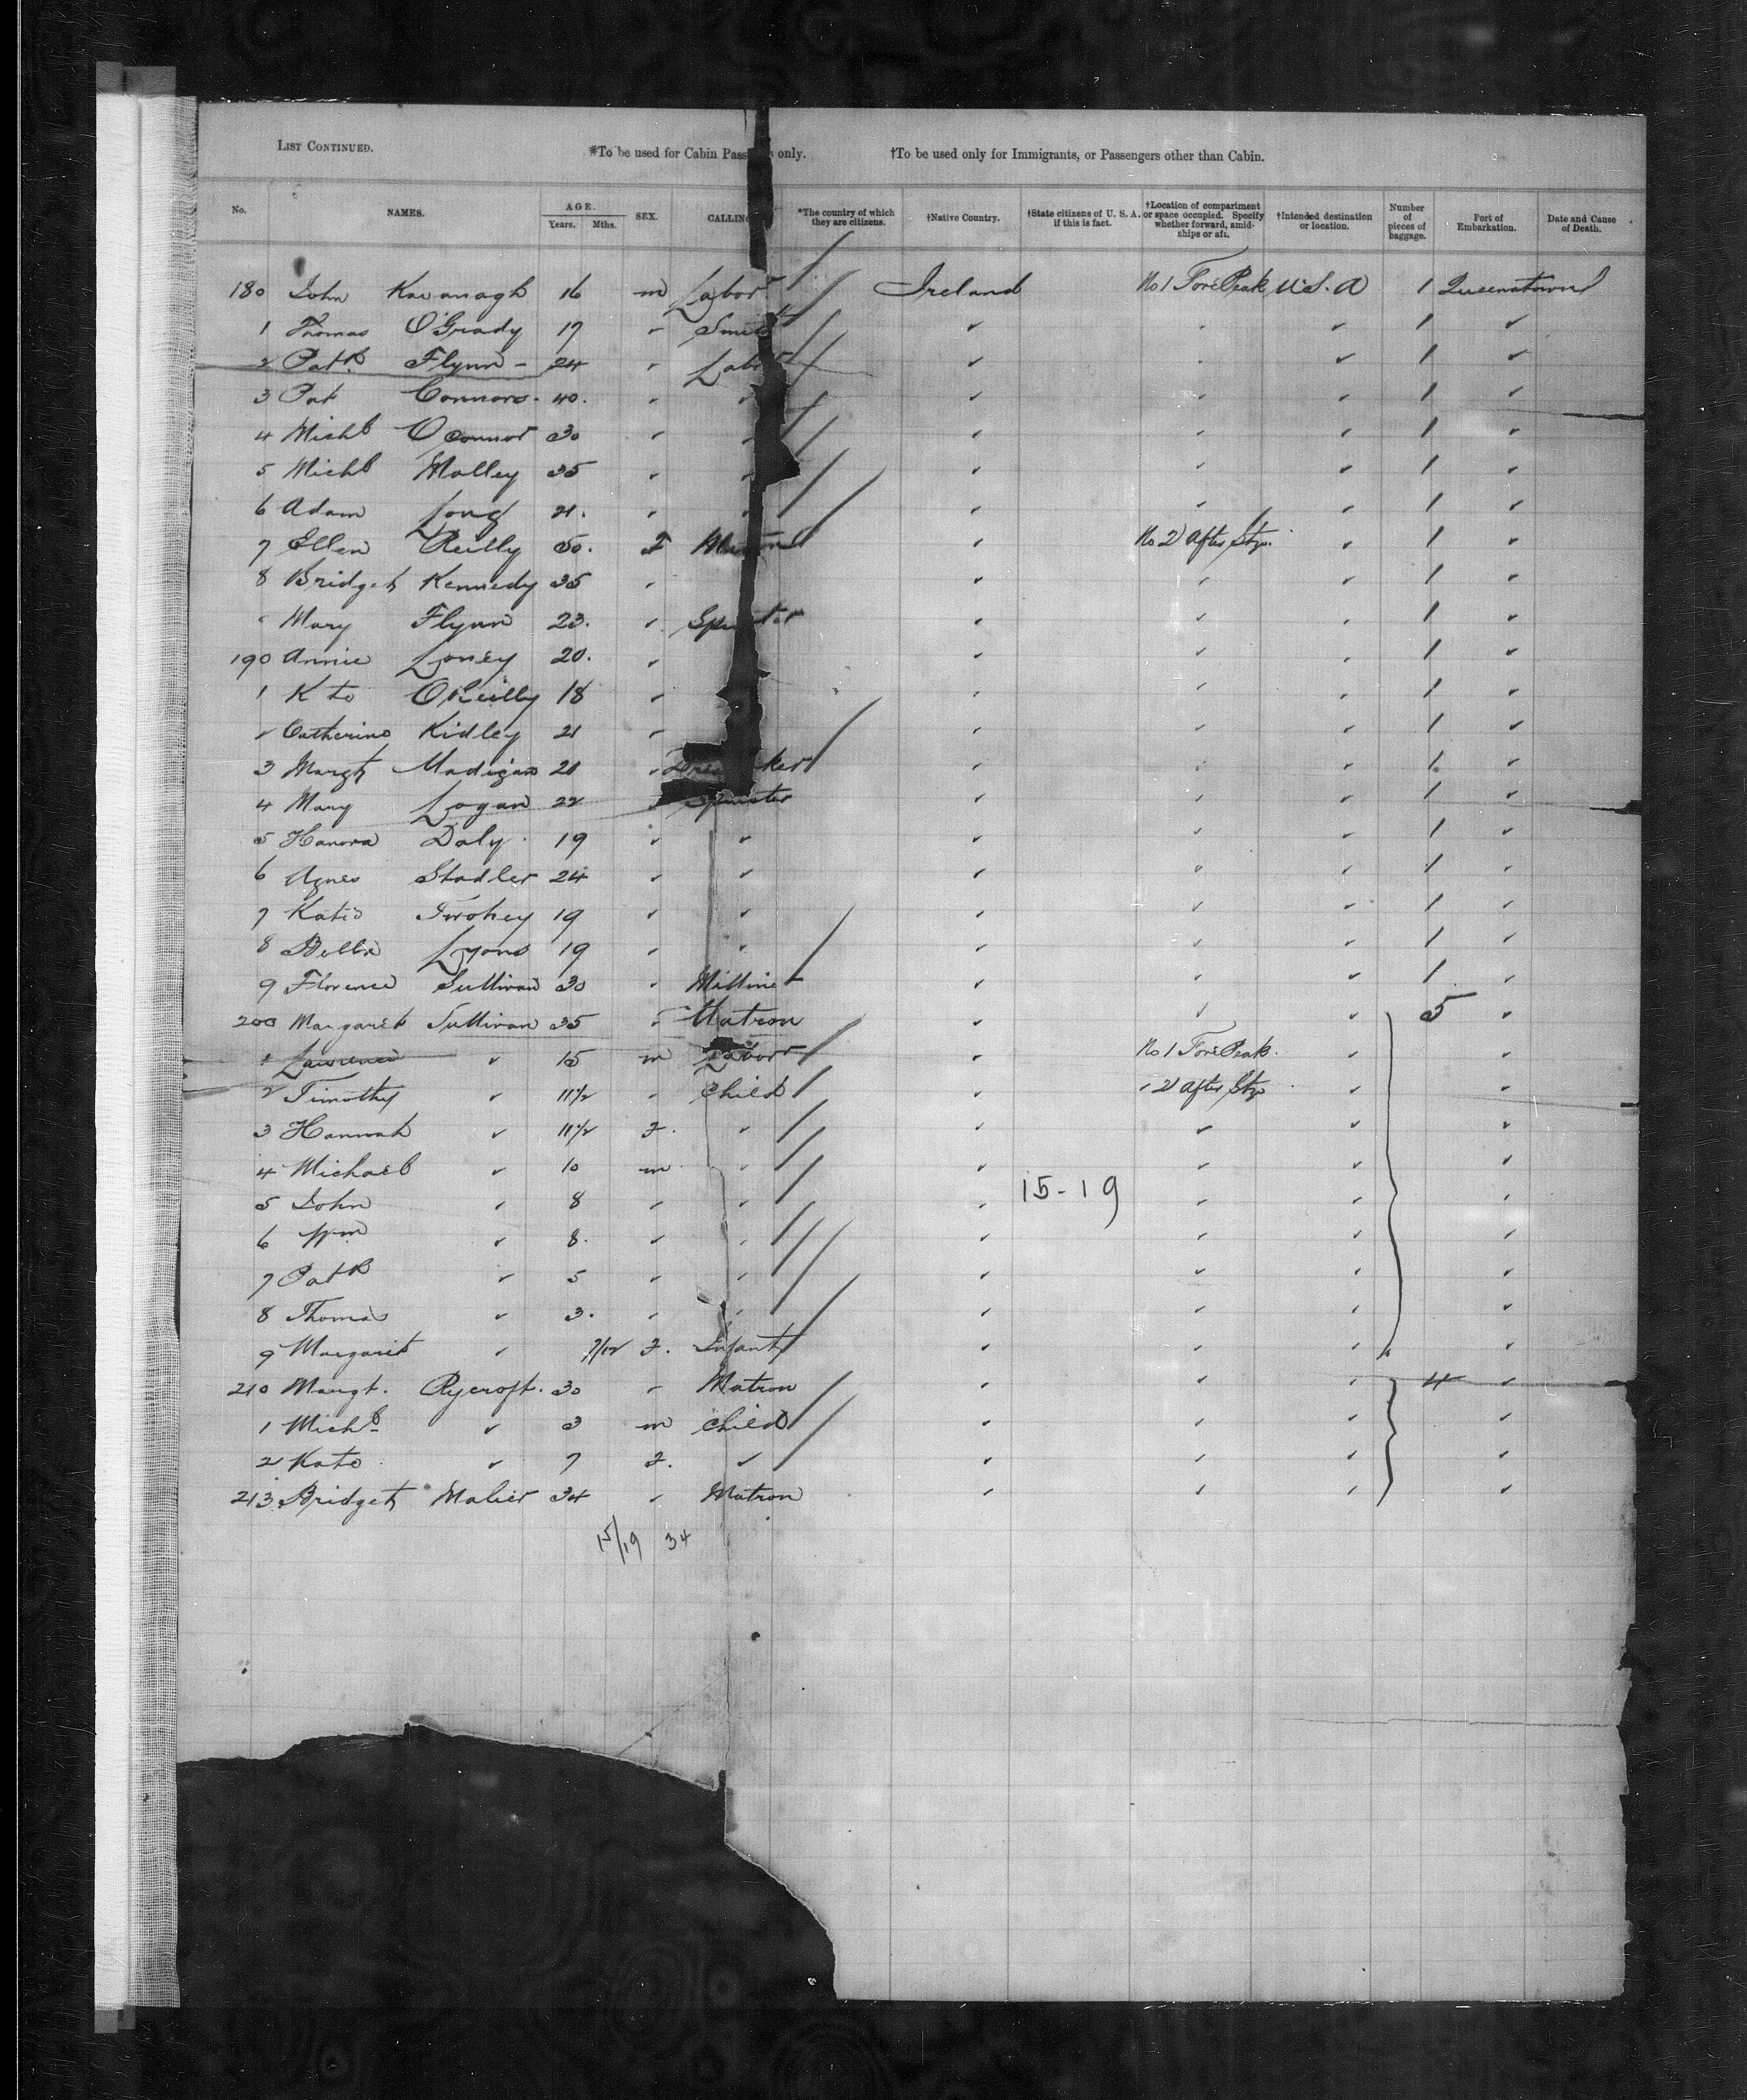 LIST CONTINUED. *To be used for Cabin Pass s only. †To be used only for Immigrants, or Passengers other than Cabin.
No. NAMES. AGE. Years. Mths. SEX. CALLING *The country of which they are citizens. †Native Country. †State citizens of U. S. A. if this is fact. †Location of compartment or space occupied. Specify whether forward, amidships or aft. †Intended destination or location. Number of pieces of baggage. Port of Embarkation. Date and Cause of Death.
180 John Kavanagh 16 m Labor Ireland No 1 Fore Peak U.S.A 1 Queenstown
1 Thomas O'Grady 17 " Smith " " " 1 "
2 Patk Flynn - 24 " Labor " " " 1 "
3 Pat Connors. 40. " " " " " 1 "
4 Michl O'Connor 30 " " " " " 1 "
5 Michl Malley 35 " " " " " 1 "
6 Adam Long 21. " " " " " 1 "
7 Ellen Reilly 50. F Matron " No 2 After Stge. " 1 "
8 Bridget Kennedy 35 " " " " 1 "
" Mary Flynn 23. " Spinster " " " 1 "
190 Annie Loney 20. " " " " 1 "
1 Kate O'Reilly 18 " " " " 1 "
" Catherine Kidley 21 " " " " 1 "
3 Margt Madigan 20 " Dre ker " " " 1 "
4 Mary Logan 22 " Spinster " " " 1 "
5 Hanora Daly. 19 " " " " " 1 "
6 Agnes Stadler 24 " " " " " 1 "
7 Katie Twohey 19 " " " " " 1 "
8 Bella Lyons 19 " " " " " 1 "
9 Florence Sullivan 30 " Milliner " " " 1 "
200 Margaret Sullivan 35 " Matron " " " 5 "
1 Lawrence " 15 m Labor " No 1 Fore Peak. " "
2 Timothy " 11½ " Child " " 2 After Stge " "
3 Hannah " 11½ F. " " " " "
4 Michael " 10 m " " " " "
5 John " 8 " " " 15-19 " " "
6 Wm " 8. " " " " " "
7 Patk " 5 " " " " " "
8 Thomas " 3. " " " " " "
9 Margaret " 7/12 F. Infant " " " "
210 Margt. Rycroft. 30 " Matron " " " 4 "
1 Michl " 3 m Child " " " "
2 Kate " 7 F. " " " " "
213 Bridget Maher 34 " Matron " " " "
15/19 34